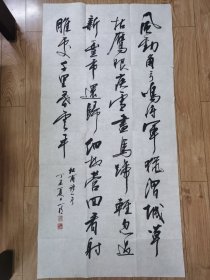 風勁角弓鳴將軍獵渭城草
枯鷹眼疾雪盡馬蹄輕忽過
新豐市還歸細柳營回看射
雕處千里暮雲平